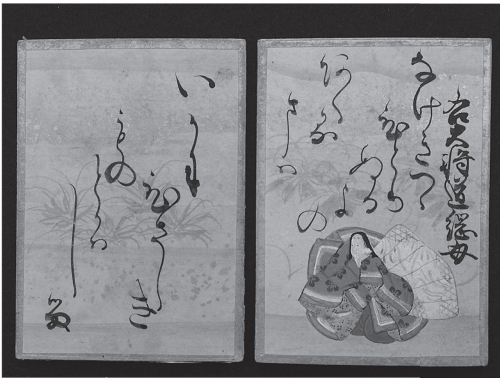 右大将道綱母
なけきつゝ
ひとり
ぬるよの
あくる
まは
いかに
ひさしき
もの
とかは
しる